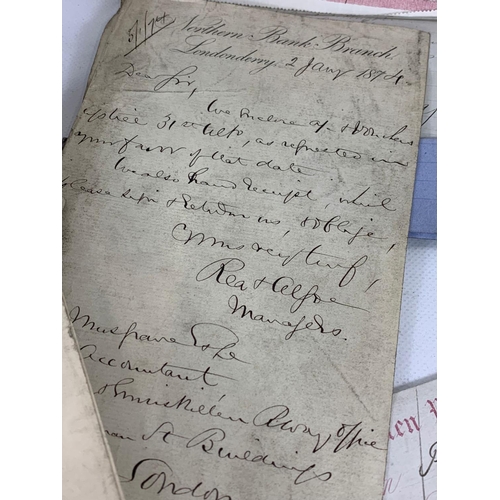 5/1/74
Northern Bank Branch
Londonderry 2 Jany 1874
Dear Sir,
We enclose a/c & Vouchers
31st ulto, as requested in
your favor of that date
We also hand receipt, which
please sign & return us, & oblige,
Yours respy
Rea &
Managers.
Musgrave
Accountant
& Enniskillen Rway Office
St Buildings
London